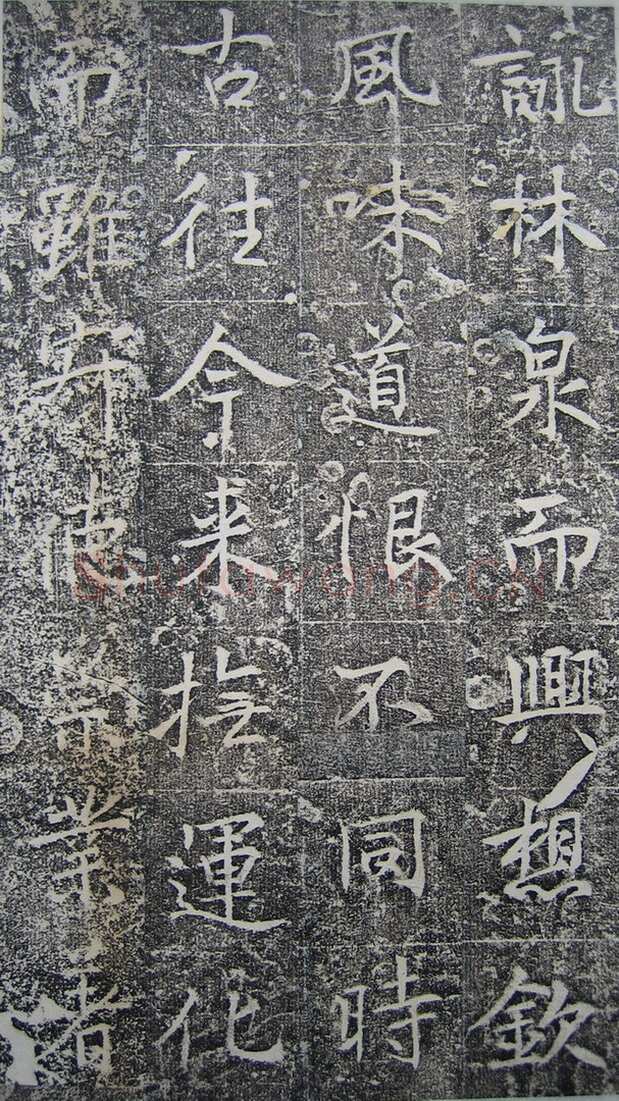 詠林泉而興想欽
風味道恨不同時
古往今来撫運化
而雖寄業者
Shufawang.CN